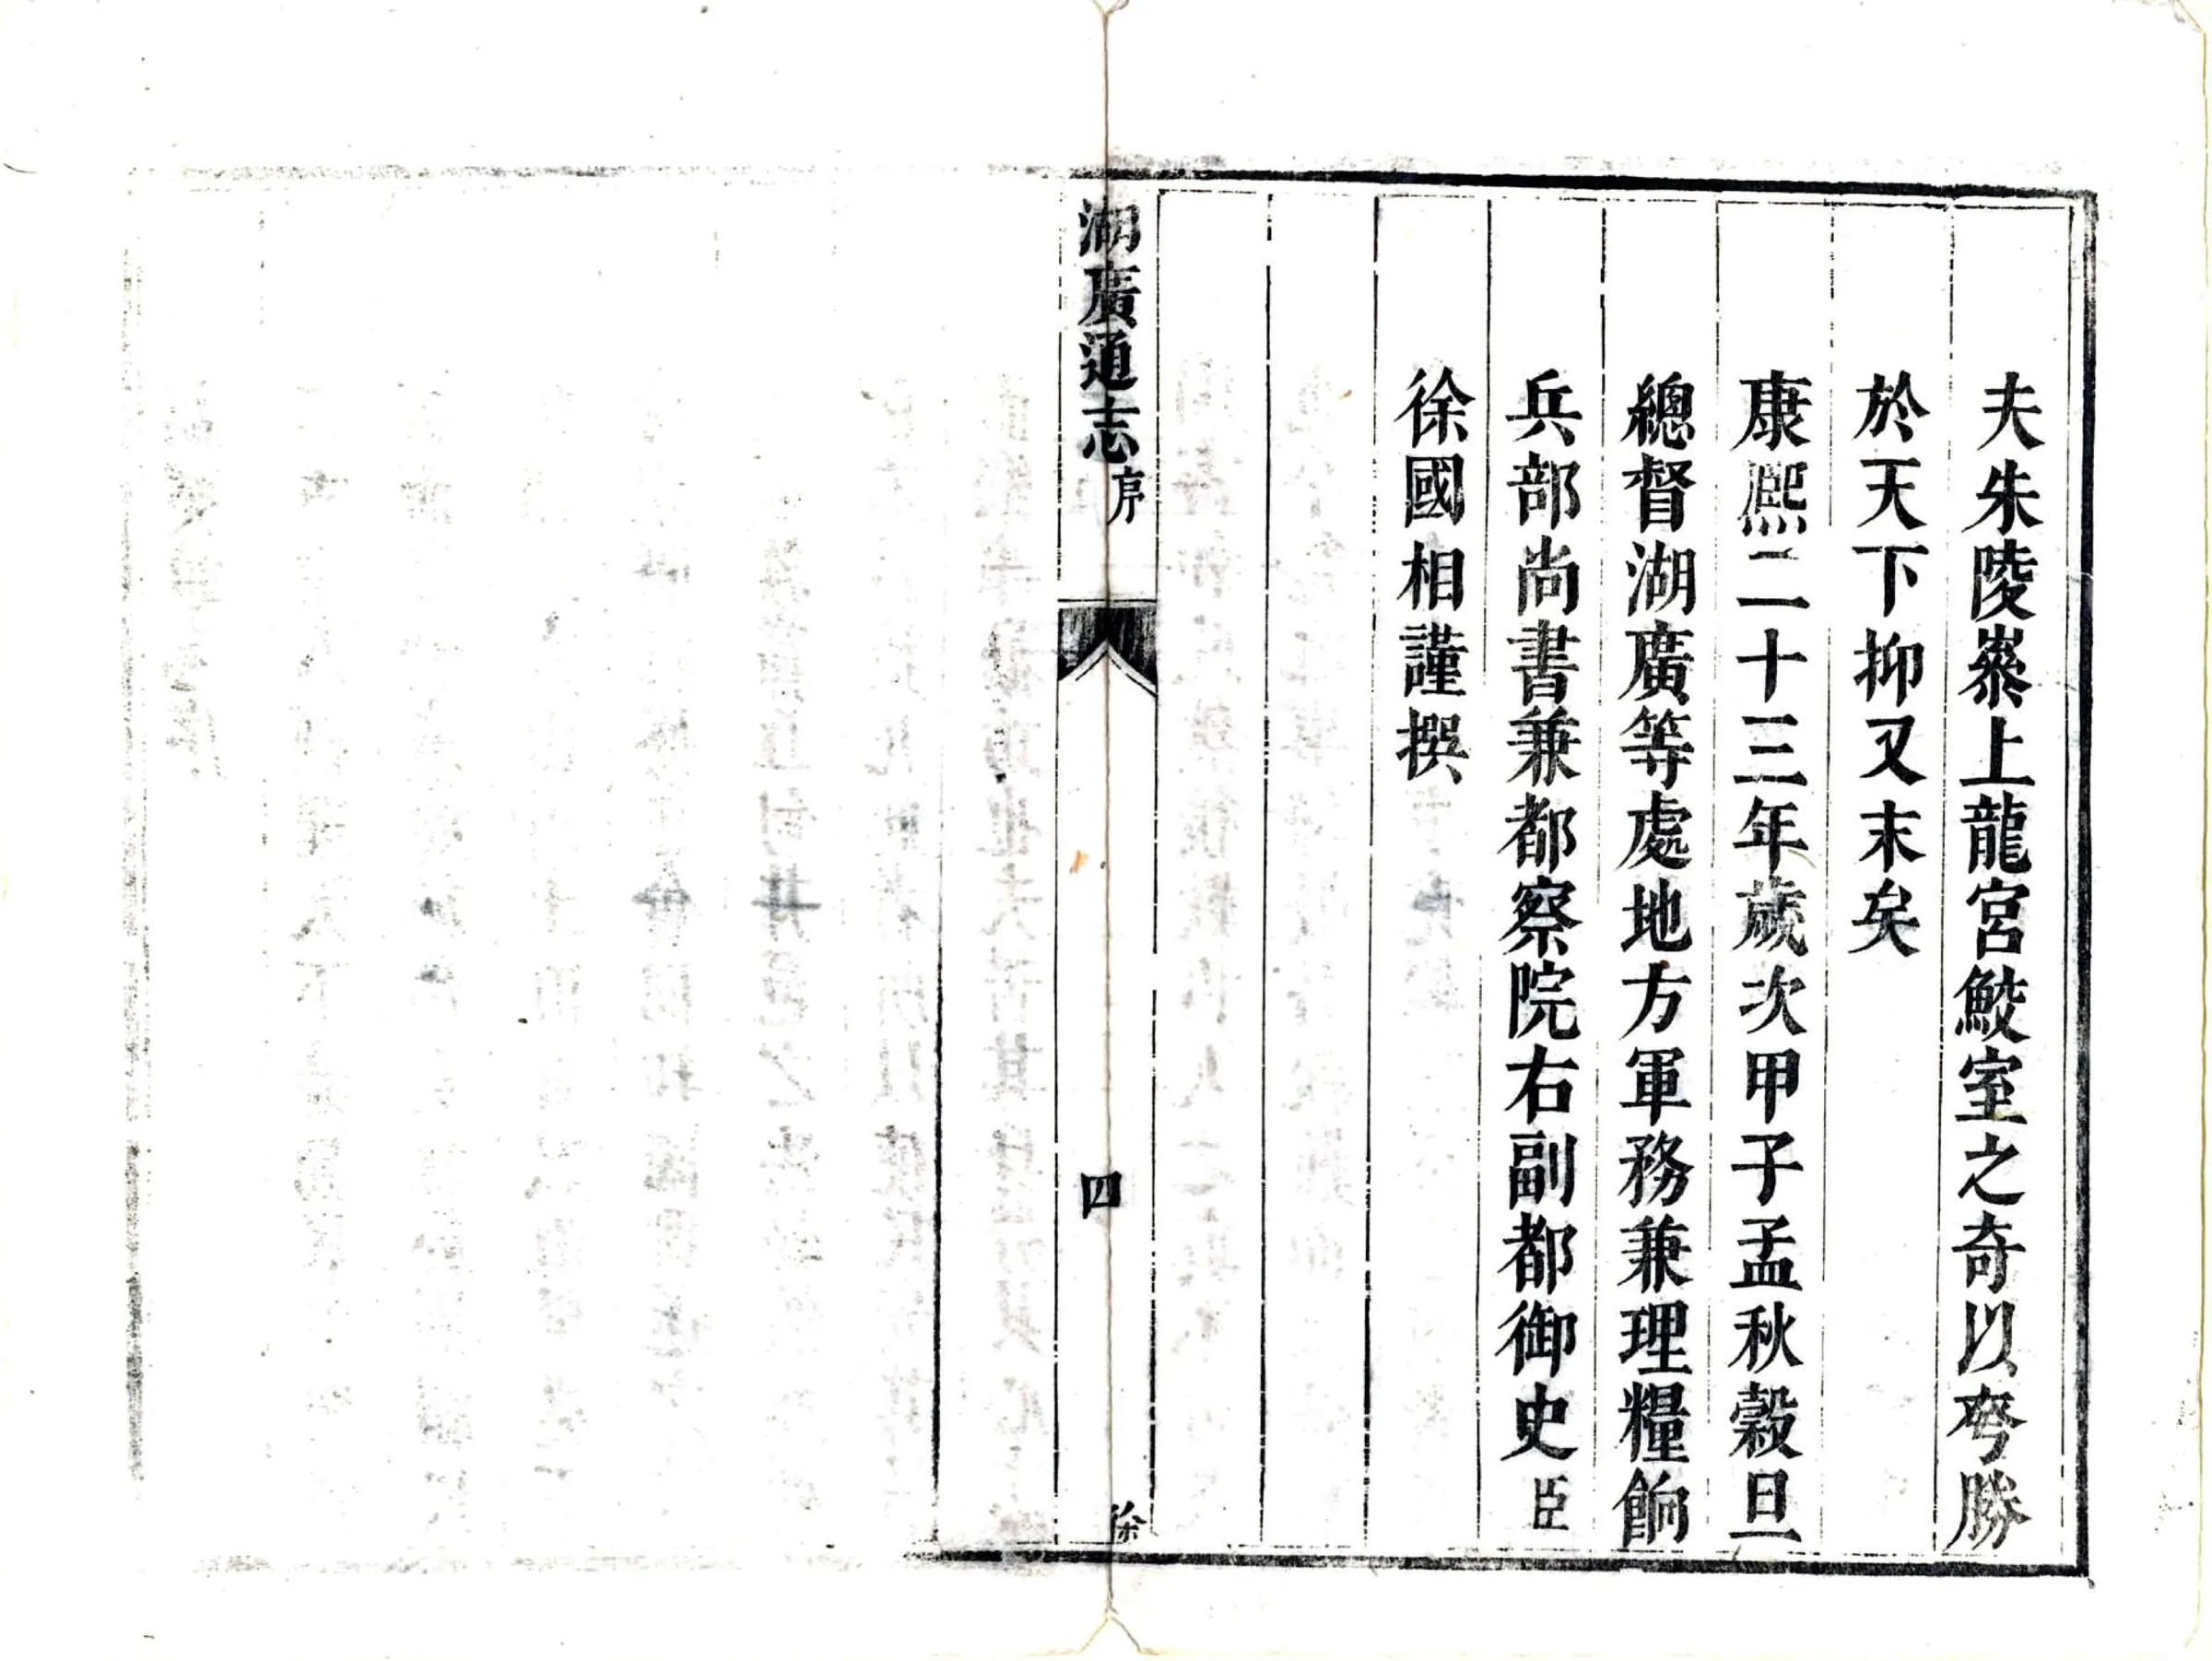 夫朱陵㤗上龍宮鮫室之奇以夸勝
於天下抑又末矣
康熈二十三年歲次甲子孟秋穀旦
總督湖廣等處地方軍務兼理糧餉
兵部尚書兼都察院右副都御史臣
徐國相謹撰
湖廣通志 序
四
徐